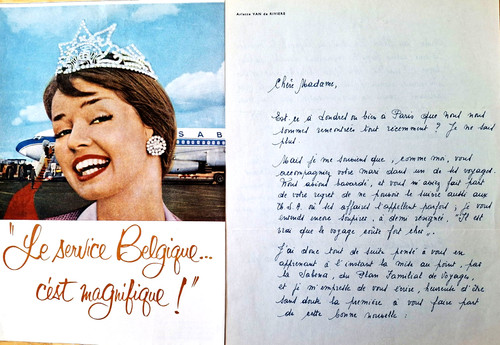 SAB
"Le service Belgique...
c'est magnifique!"
Arlette VAN de RIVIERE
Chère Madame,
Est-ce à Londres ou bien à Paris que nous nous
sommes rencontrées tout récemment ? Je ne sais
plus.
Mais je me souviens que, comme moi, vous
accompagniez votre mari dans un de ses voyages.
Nous avions bavardé, et vous m'aviez fait part
de votre regret de ne pouvoir le suivre aussi aux
U.S.A. où ses affaires l'appellent parfois ; je vous
entends encore soupirer, à demi résignée : "Il est
vrai que le voyage coûte fort cher".
J'ai donc tout de suite pensé à vous en
apprenant à l'instant la mise au point, par
la Sabena, du Plan Familial de Voyages,
et je m'empresse de vous écrire, heureuse d'être
sans doute la première à vous faire part
de cette bonne nouvelle :